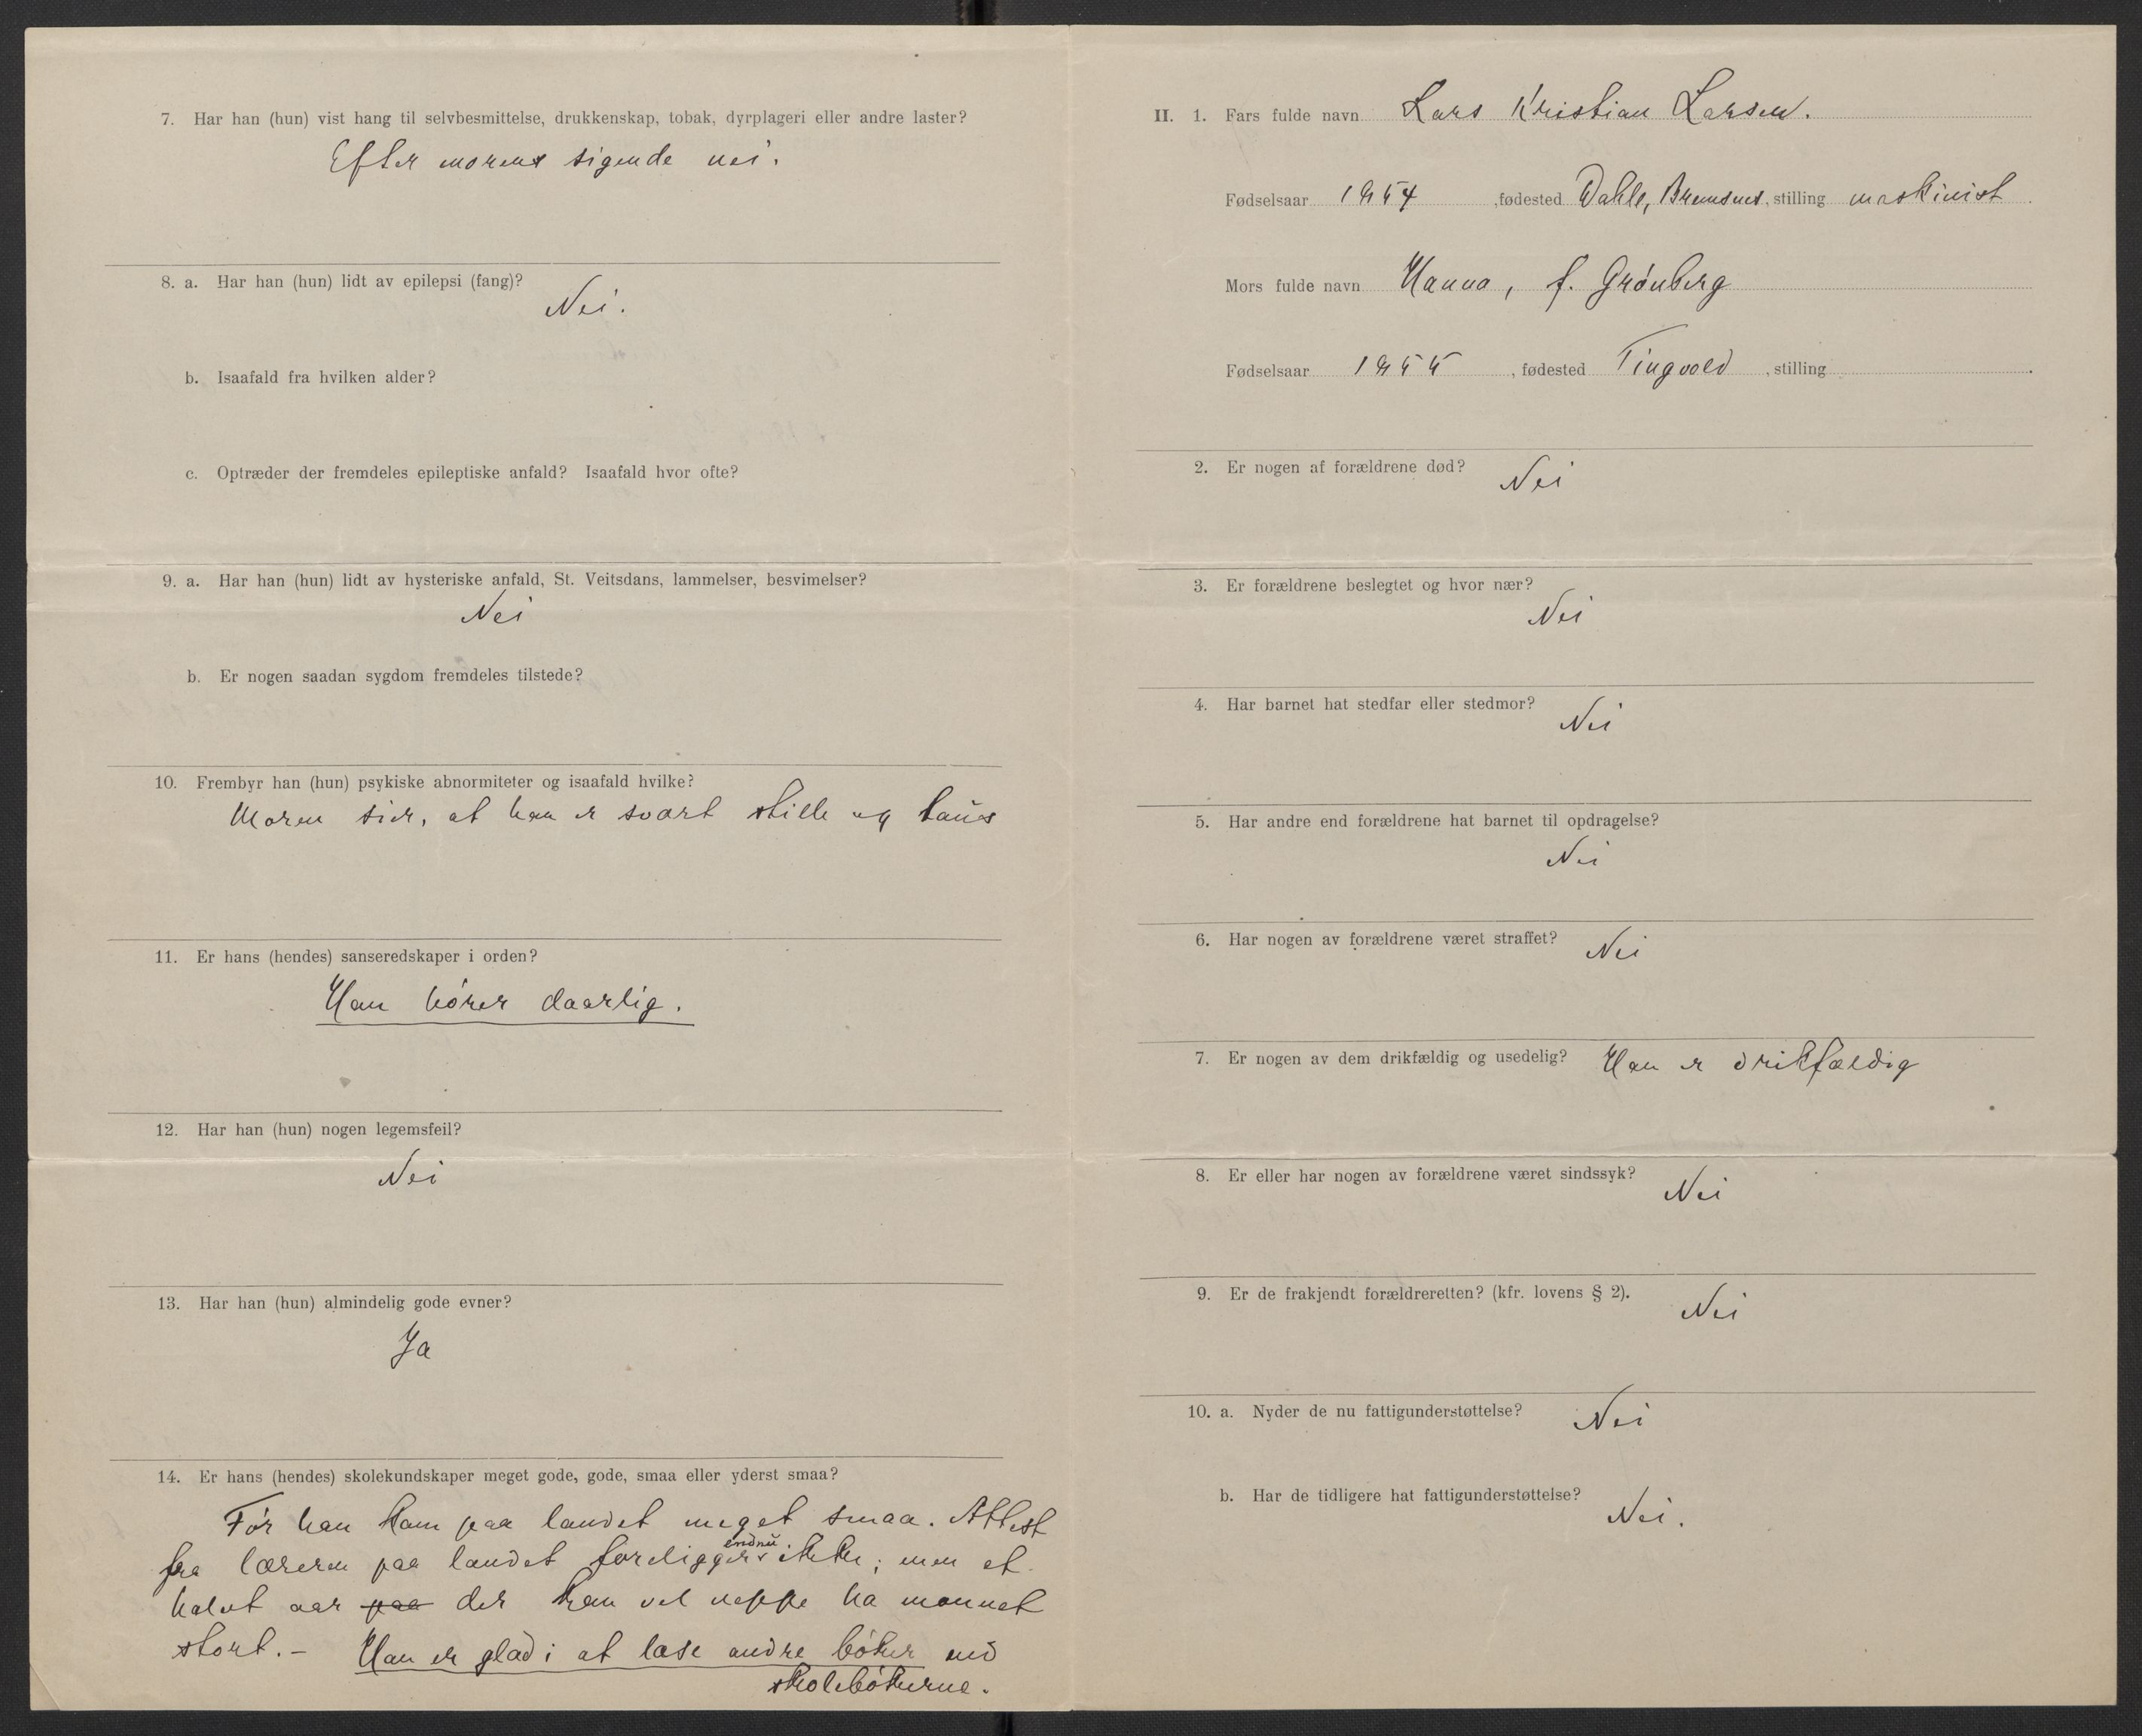 7. Har han (hun) vist hang til selvbesmittelse, drukkenskap, tobak, dyrplageri eller andre laster?
Efter morens sigende nei.
8. a. Har han (hun) lidt av epilepsi (fang)?
Nei.
b. Isaafald fra hvilken alder?
c. Optræder der fremdeles epileptiske anfald? Isaafald hvor ofte?
9. a. Har han (hun) lidt av hysteriske anfald, St. Veitsdans, lammelser, besvimelser?
Nei
b. Er nogen saadan sygdom fremdeles tilstede?
10. Frembyr han (hun) psykiske abnormiteter og isaafald hvilke?
Moren sier, at han er svært stille og taus
11. Er hans (hendes) sanseredskaper i orden?
Han hører daarlig.
12. Har han (hun) nogen legemsfeil?
Nei
13. Har han (hun) almindelig gode evner?
Ja
14. Er hans (hendes) skolekundskaper meget gode, gode, smaa eller yderst smaa?
Før han kom paa landet meget smaa. Attest
fra læreren paa landet foreligger endnu ikke; men et
halvt aar paa der kan vel neppe ha monnet
stort. – Han er glad i at læse andre bøker end
skolebøkerne.
II. 1. Fars fulde navn Lars Kristian Larsen.
Fødselsaar 1854, fødested Dahle, Bremsnes, stilling maskinist.
Mors fulde navn Hanna, f. Grønberg
Fødselsaar 1855, fødested Tingvold, stilling
2. Er nogen af forældrene død? Nei
3. Er forældrene beslegtet og hvor nær?
Nei
4. Har barnet hat stedfar eller stedmor? Nei
5. Har andre end forældrene hat barnet til opdragelse?
Nei
6. Har nogen av forældrene været straffet? Nei
7. Er nogen av dem drikfældig og usedelig? Han er drikfældig
8. Er eller har nogen av forældrene været sindssyk? Nei
9. Er de frakjendt forældreretten? (kfr. lovens § 2). Nei
10. a. Nyder de nu fattigunderstøttelse? Nei
b. Har de tidligere hat fattigunderstøttelse? Nei.